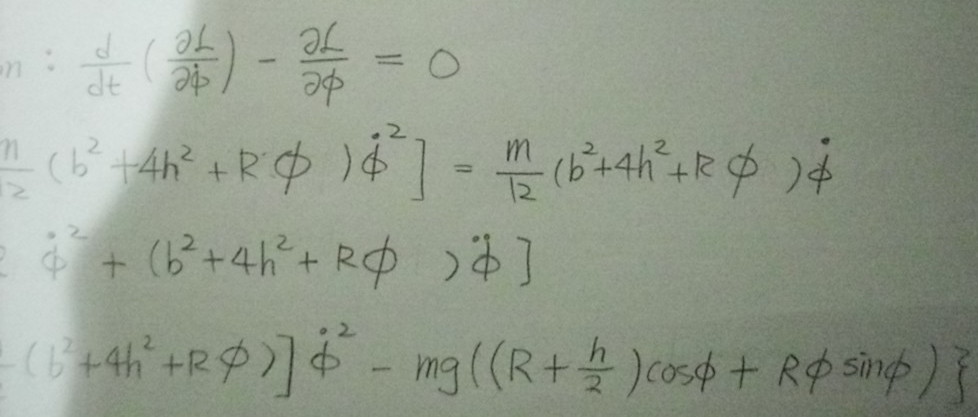 n : d/dt (∂L/∂φ̇) - ∂L/∂φ = 0
m/12 (b²+4h²+Rφ )φ̇²] = m/12 (b²+4h²+Rφ )φ̇
φ̇² + (b²+4h²+Rφ )φ̈]
(b²+4h²+Rφ)]φ̇² - mg((R+h/2)cosφ + Rφ sinφ)}